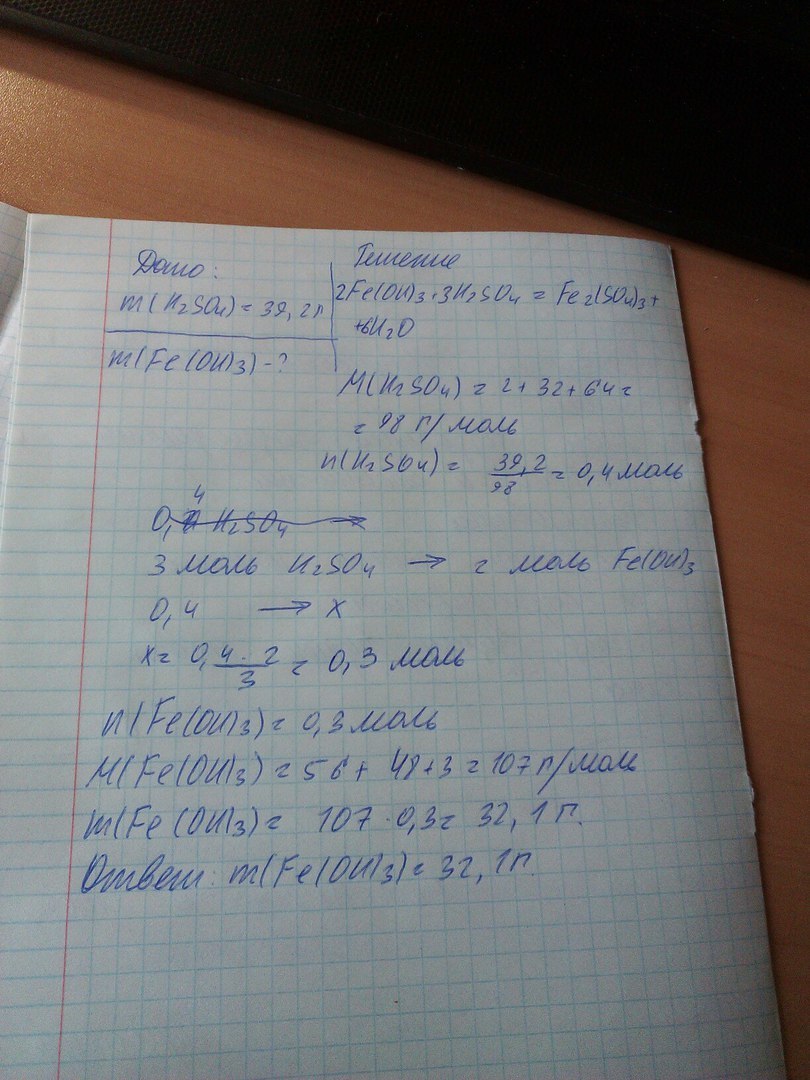 Дано:
m(H2SO4) = 39,2г
m(Fe(OH)3) - ?
Решение
2Fe(OH)3+3H2SO4 = Fe2(SO4)3+
+6H2O
M(H2SO4) = 2+32+64=
= 98 г/моль
n(H2SO4) = 39,2/98 = 0,4 моль
0,4 H2SO4 → x
3 моль H2SO4 → 2 моль Fe(OH)3
0,4 → x
x = 0,4·2/3 = 0,3 моль
n(Fe(OH)3) = 0,3 моль
M(Fe(OH)3) = 56+ 48+3 = 107 г/моль
m(Fe(OH)3) = 107 · 0,3 = 32,1 г.
Ответ: m(Fe(OH)3) = 32,1г.